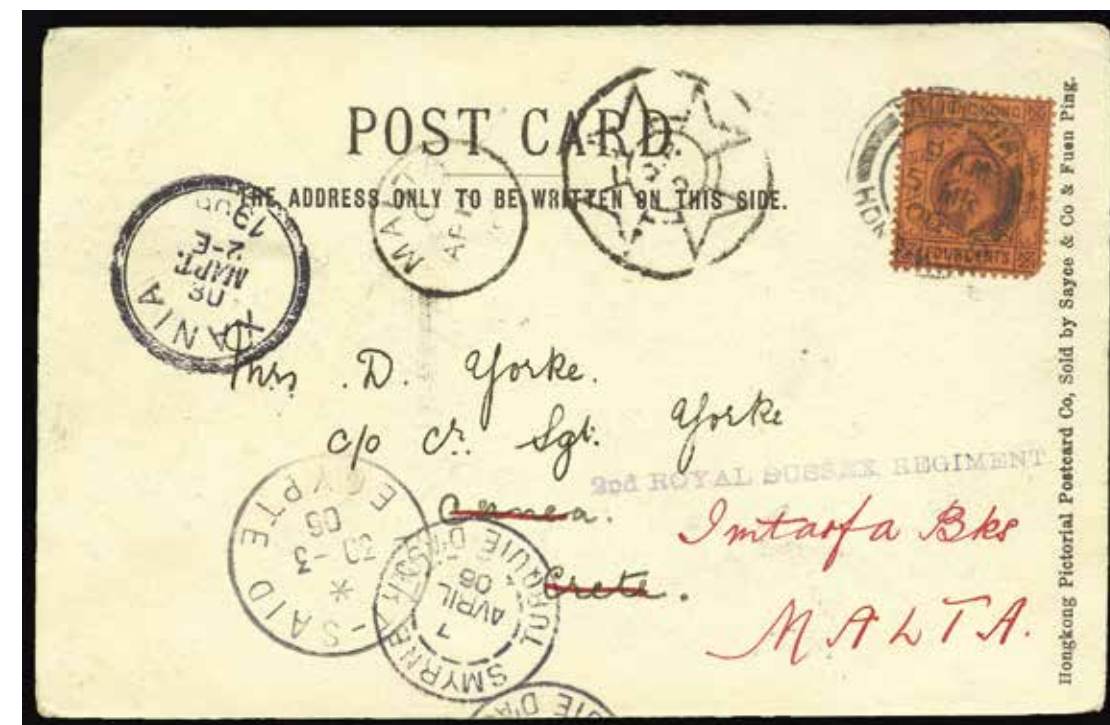 POST CARD.
THE ADDRESS ONLY TO BE WRITTEN ON THIS SIDE.
HONGKONG
FOUR CENTS
MALTA
AP
ΧΑΝΙΑ
30
ΜΑΡΤ.
2-Ε
1906
Mrs. D. Yorke.
c/o Cr. Sgt. Yorke
2nd ROYAL SUSSEX REGIMENT
Canea.
Crete.
Imtarfa Bks
MALTA.
-SAID
EGYPTE
30 -3
06
SMYRNE
TURQUIE D'
7
AVRIL
06
Hongkong Pictorial Postcard Co, Sold by Sayce & Co & Fuen Ping.